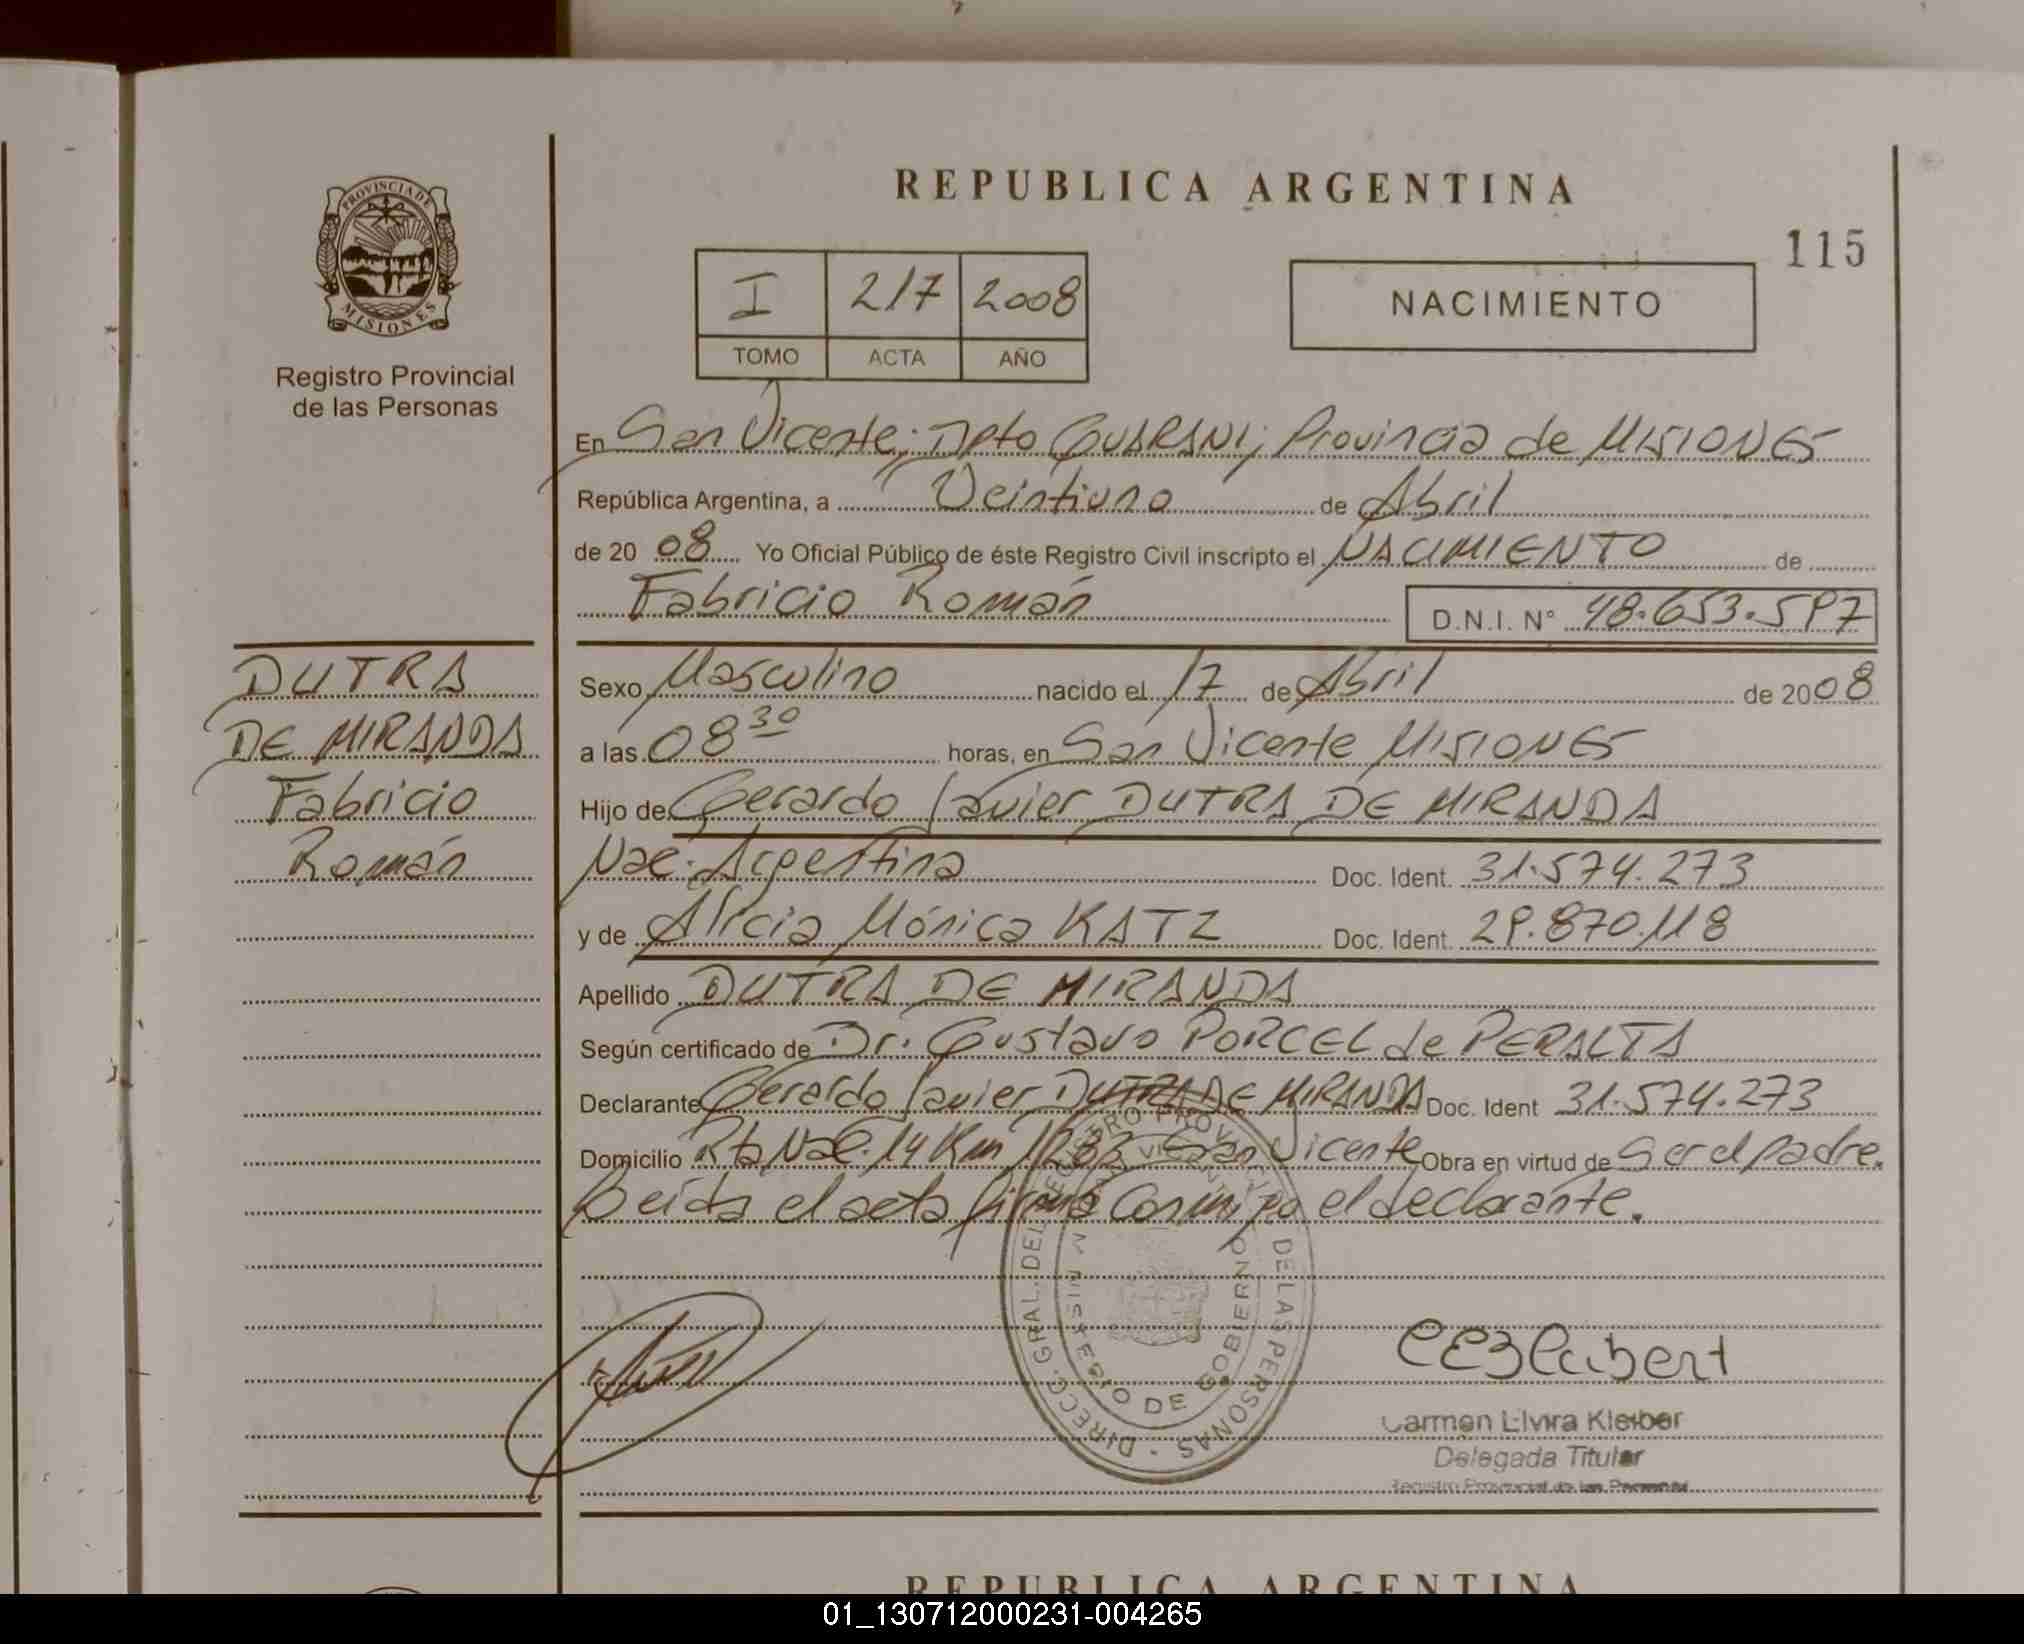 REPUBLICA ARGENTINA
115
PROVINCIA DE
MISIONES
Registro Provincial
de las Personas
I 217 2008
TOMO ACTA AÑO
NACIMIENTO
En San Vicente; Dpto GUARANI; Provincia de MISIONES
República Argentina, a Veintiuno de Abril
de 2008 Yo Oficial Público de éste Registro Civil inscripto el NACIMIENTO de
Fabricio Román D.N.I. N° 48.653.597
DUTRA
DE MIRANDA
Fabricio
Román
Sexo Masculino nacido el 17 de Abril de 2008
a las 08 30 horas, en San Vicente MISIONES
Hijo de Gerardo Javier DUTRA DE MIRANDA
Nac. Argentina Doc. Ident. 31.574.273
y de Alicia Mónica KATZ Doc. Ident. 29.870.118
Apellido DUTRA DE MIRANDA
Según certificado de Dr. Gustavo PORCEL de PERALTA
Declarante Gerardo Javier DUTRA DE MIRANDA Doc. Ident 31.574.273
Domicilio Rta Nac. 14 Km San Vicente Obra en virtud de Ser el padre.
Leída el acta firma Conmigo el declarante.
DIRECC. GRAL. DEL REGISTRO PROVINCIAL DE LAS PERSONAS
MINISTERIO DE GOBIERNO
Carmen Elvira Kleiber
Delegada Titular
Registro Provincial de las Personas
REPUBLICA ARGENTINA
01_130712000231-004265